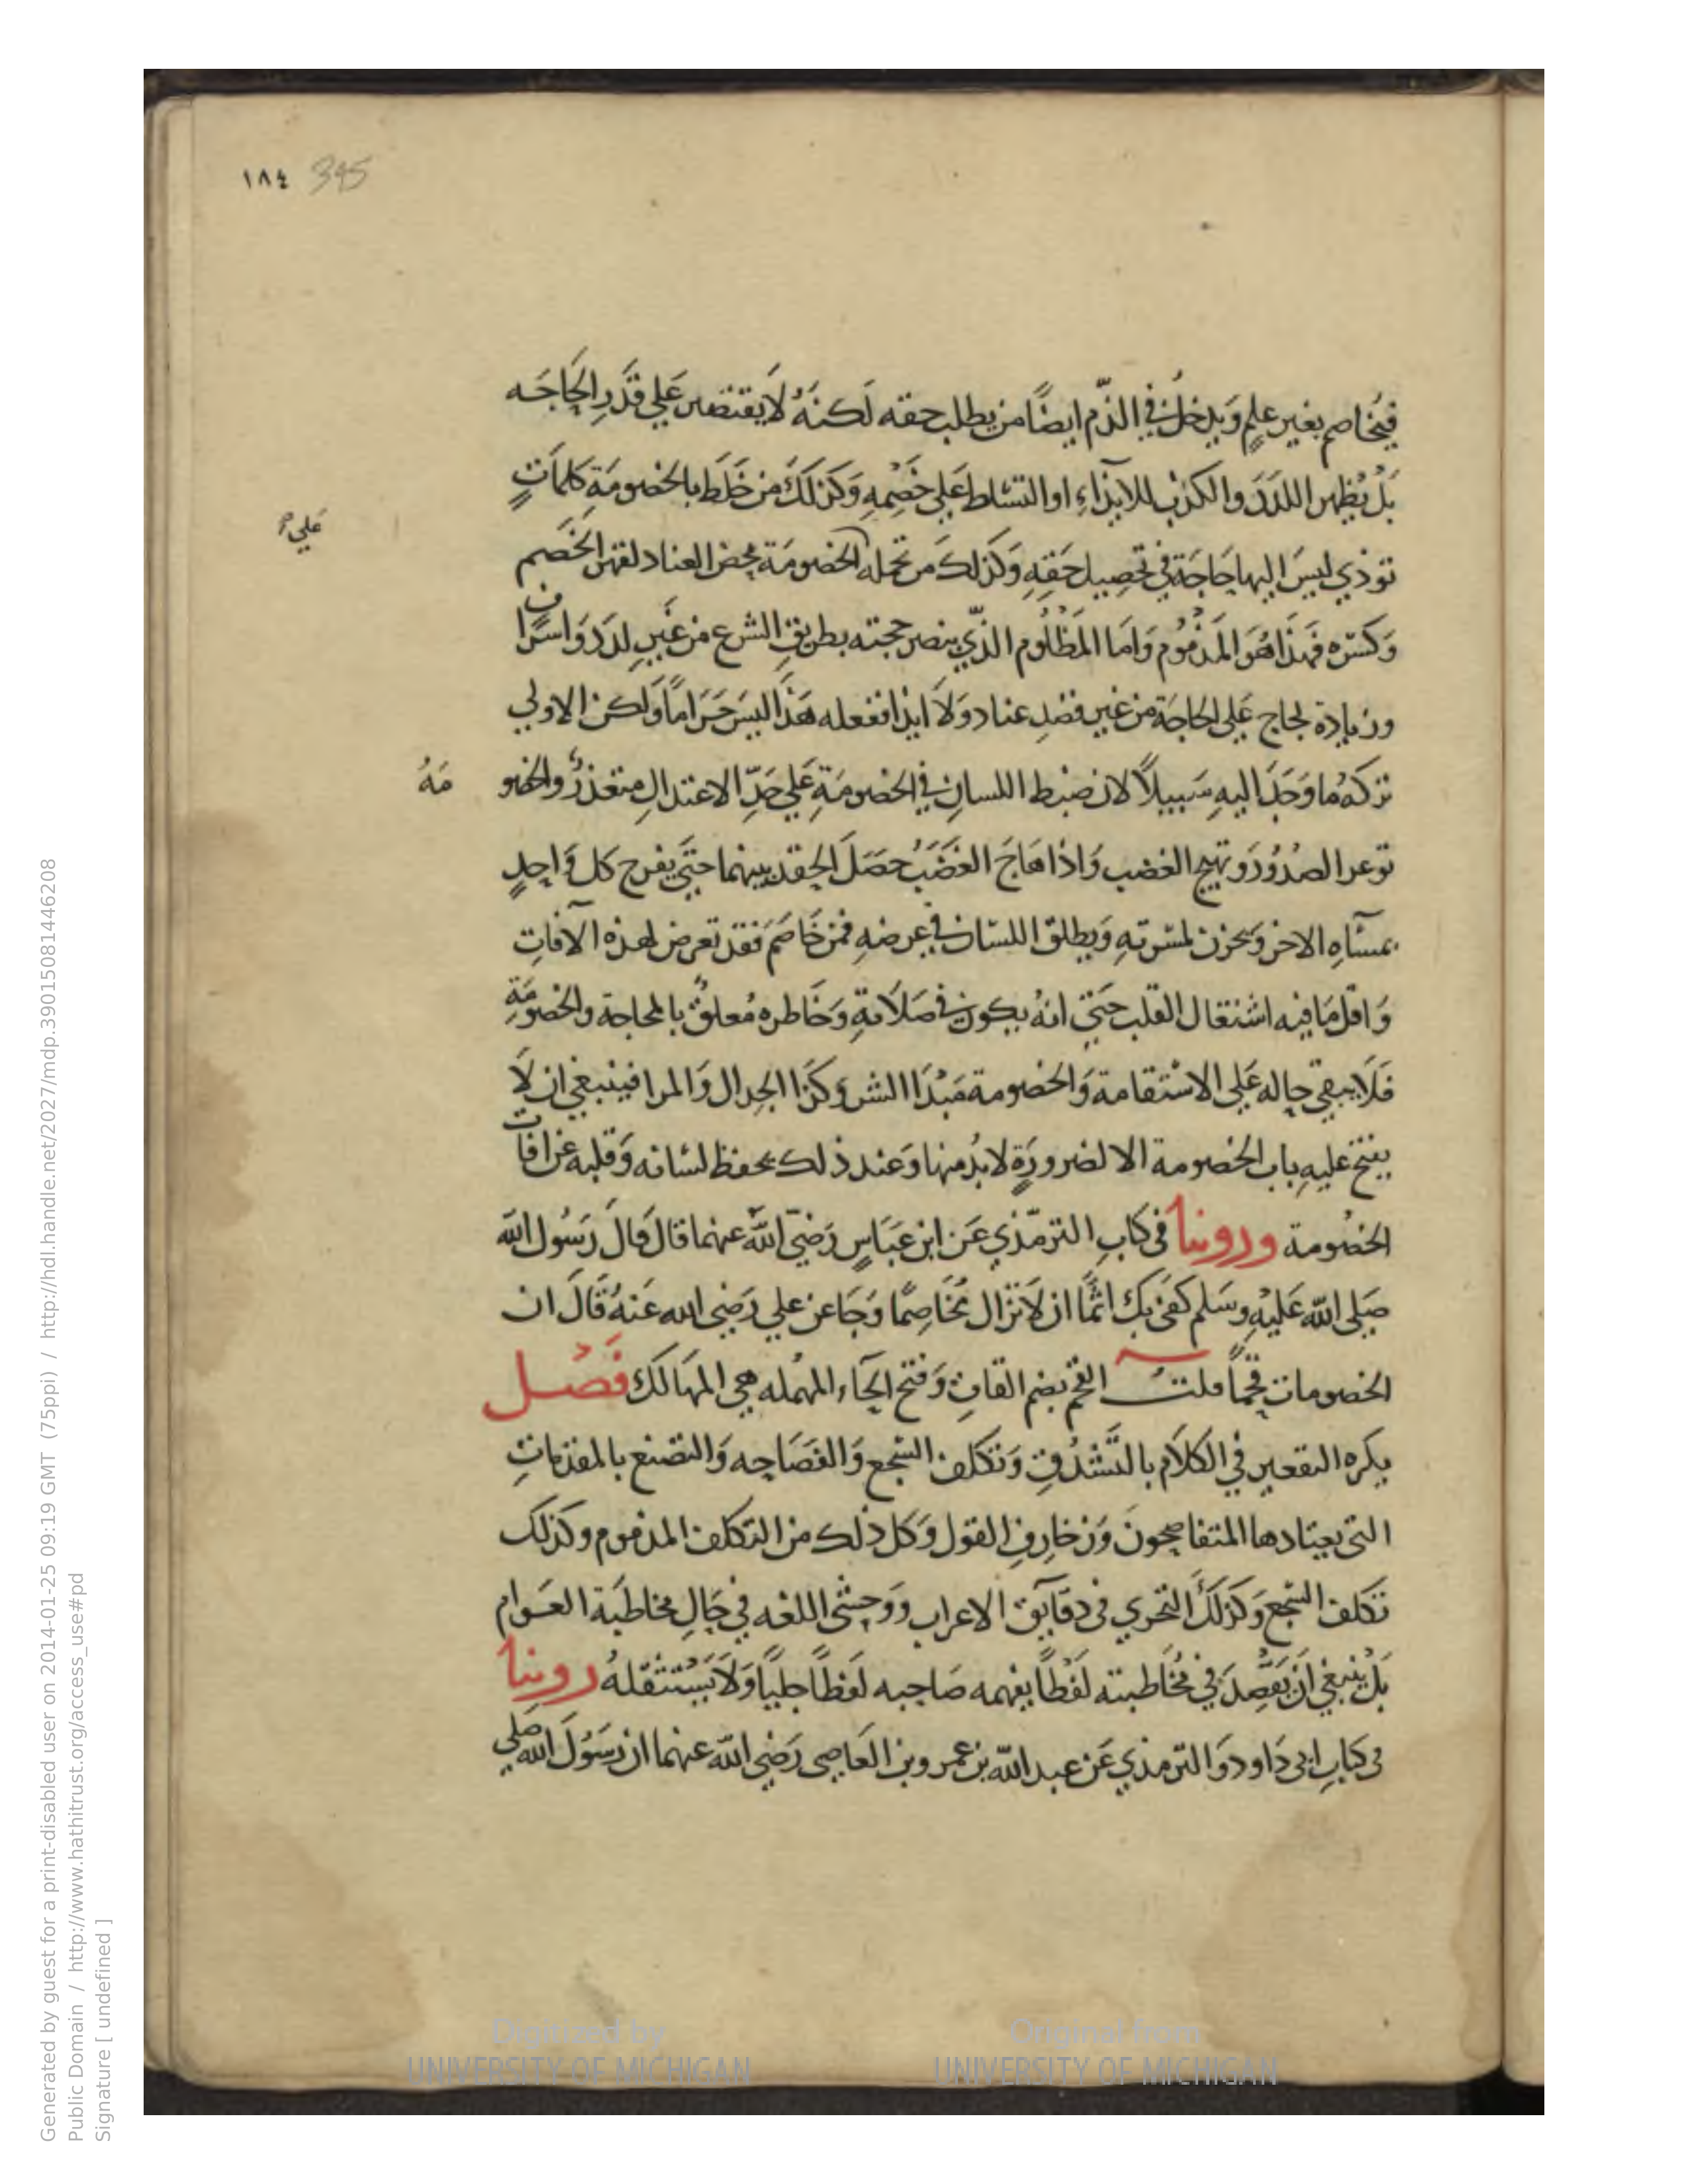 ١٨٤ 345
فيُخَاصم بغير علمٍ وَيدخل في الذّم ايضًا من يطلب حقه لَكنهُ لاَ يقتصر عَلي قَدَرِ الحَاجَه
بَلْ يُظهر اللدَدَ والكذب للايذآءِ او التشلط عَلي خَصْمِهِ وَكذلكَ من خَلَط بالخصُومَةِ كلماتٍ
عَلي
توذي ليسَ اليها حَاجَة في تحصِيل حَقِهِ وَكذلك مَن تحمله الخصُومَة محض العناد لقهر الخَصم
وَكسْره فهذَا هُوَ المَذمُوم وَامَا المَظْلُوم الذّي ينصر حجته بطريقِ الشرع من غَيرِ لدَد وَاسرَاف
وزيادة لجاج عَلي الحاجَة من غير قصدِ عناد وَلاَ ايذا ففعله هَذَا ليسَ حَرَامًا وَلكن الاولي
تركهُ ما وَجَدَ اليهِ سَبيلاً لان ضبط اللسانِ في الخصُومَةِ عَلي حَدِّ الاعتدالِ متعذرٌ والخصُو مَهُ
توعر الصدُوُر وَتهيج الغضب وَاذا هَاجَ الغضَبُ حصَلَ الحِقد بينهما حتَي يفرح كل وَاحِدٍ
بمسَآه الاخر وَيحزن لمسرتهِ وَيطلق اللسَان في عرضهِ فمن خَاصَم فقد تعرض لهذه الآفاتِ
وَاقل مَا فيه اشتغال القلب حتَي انهُ يكون في صَلاَتهِ وَخَاطره مُعلقٌ بالمحاجة والخصُومَةِ
فَلاَ يبقي حَاله عَلي الاسْتقامة وَالخصُومة مَبْدَا الشر وَكذا الجدال وَالمرا فينبغي ان لاَ
يفتح عليهِ باب الخصُومة الا لضرورَةٍ لابُد منها وَعند ذلك يحفظ لسَانه وَقلبه عن افات
الخصُومة وروينا في كتابِ الترمّذي عَن ابن عَبَاسٍ رَضيَ اللّهَ عنهما قال قالَ رَسُول اللّه
صَلي اللّه عَليْهِ وسَلم كفَي بك اثمًا ان لاَ تزال مُخَاصِمًا وَجَا عن علي رَضي الله عَنهُ قالَ ان
الخصُومات قحمًا قلتُ القحم بضم القافِ وَفتح الحَآءِ المهُمله هي المهَالك فَصْل
يكره التقعير في الكلاَم بالتَّشدُقِ وَتكلف السَّجع وَالفصَاحِه وَالتصنع بالمقدمَاتِ
التي يعتادها المتفاصِحونَ وَزخارفِ القول وَكل ذلك من التكلف المذموم وكذلك
تكلف السّجع وَكذلكَ التحري في دقايَق الاعراب ووَحشي اللغه في حَالِ مخاطبَة العَوام
بَلْ ينبغي اَن يَقصِدَ في مُخَاطبته لَفْظاً يفهمه صَاحِبه لَفظاً جليًا وَلاَ يَسْتثقلهُ روينا
في كتابِ ابي دَاود وَالترمذي عَن عبد اللّه بن عمرو بن العَاصِي رَضي اللّه عنهما ان رَسُولَ اللّه صَلي